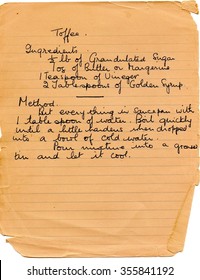 Toffee.
Ingredients
½ lb of Grandulated Sugar
1 oz of Butter or Margerine
1 Teaspoon of Vinegar
2 Tablespoons of Golden Syrup
Method.
Put everything in Saucepan with
1 table spoon of water. Boil quickly
until a little hardens when dropped
into a bowl of cold water.
Pour mixture into a greased
tin and let it cool.
shutterstock.com · 355841192